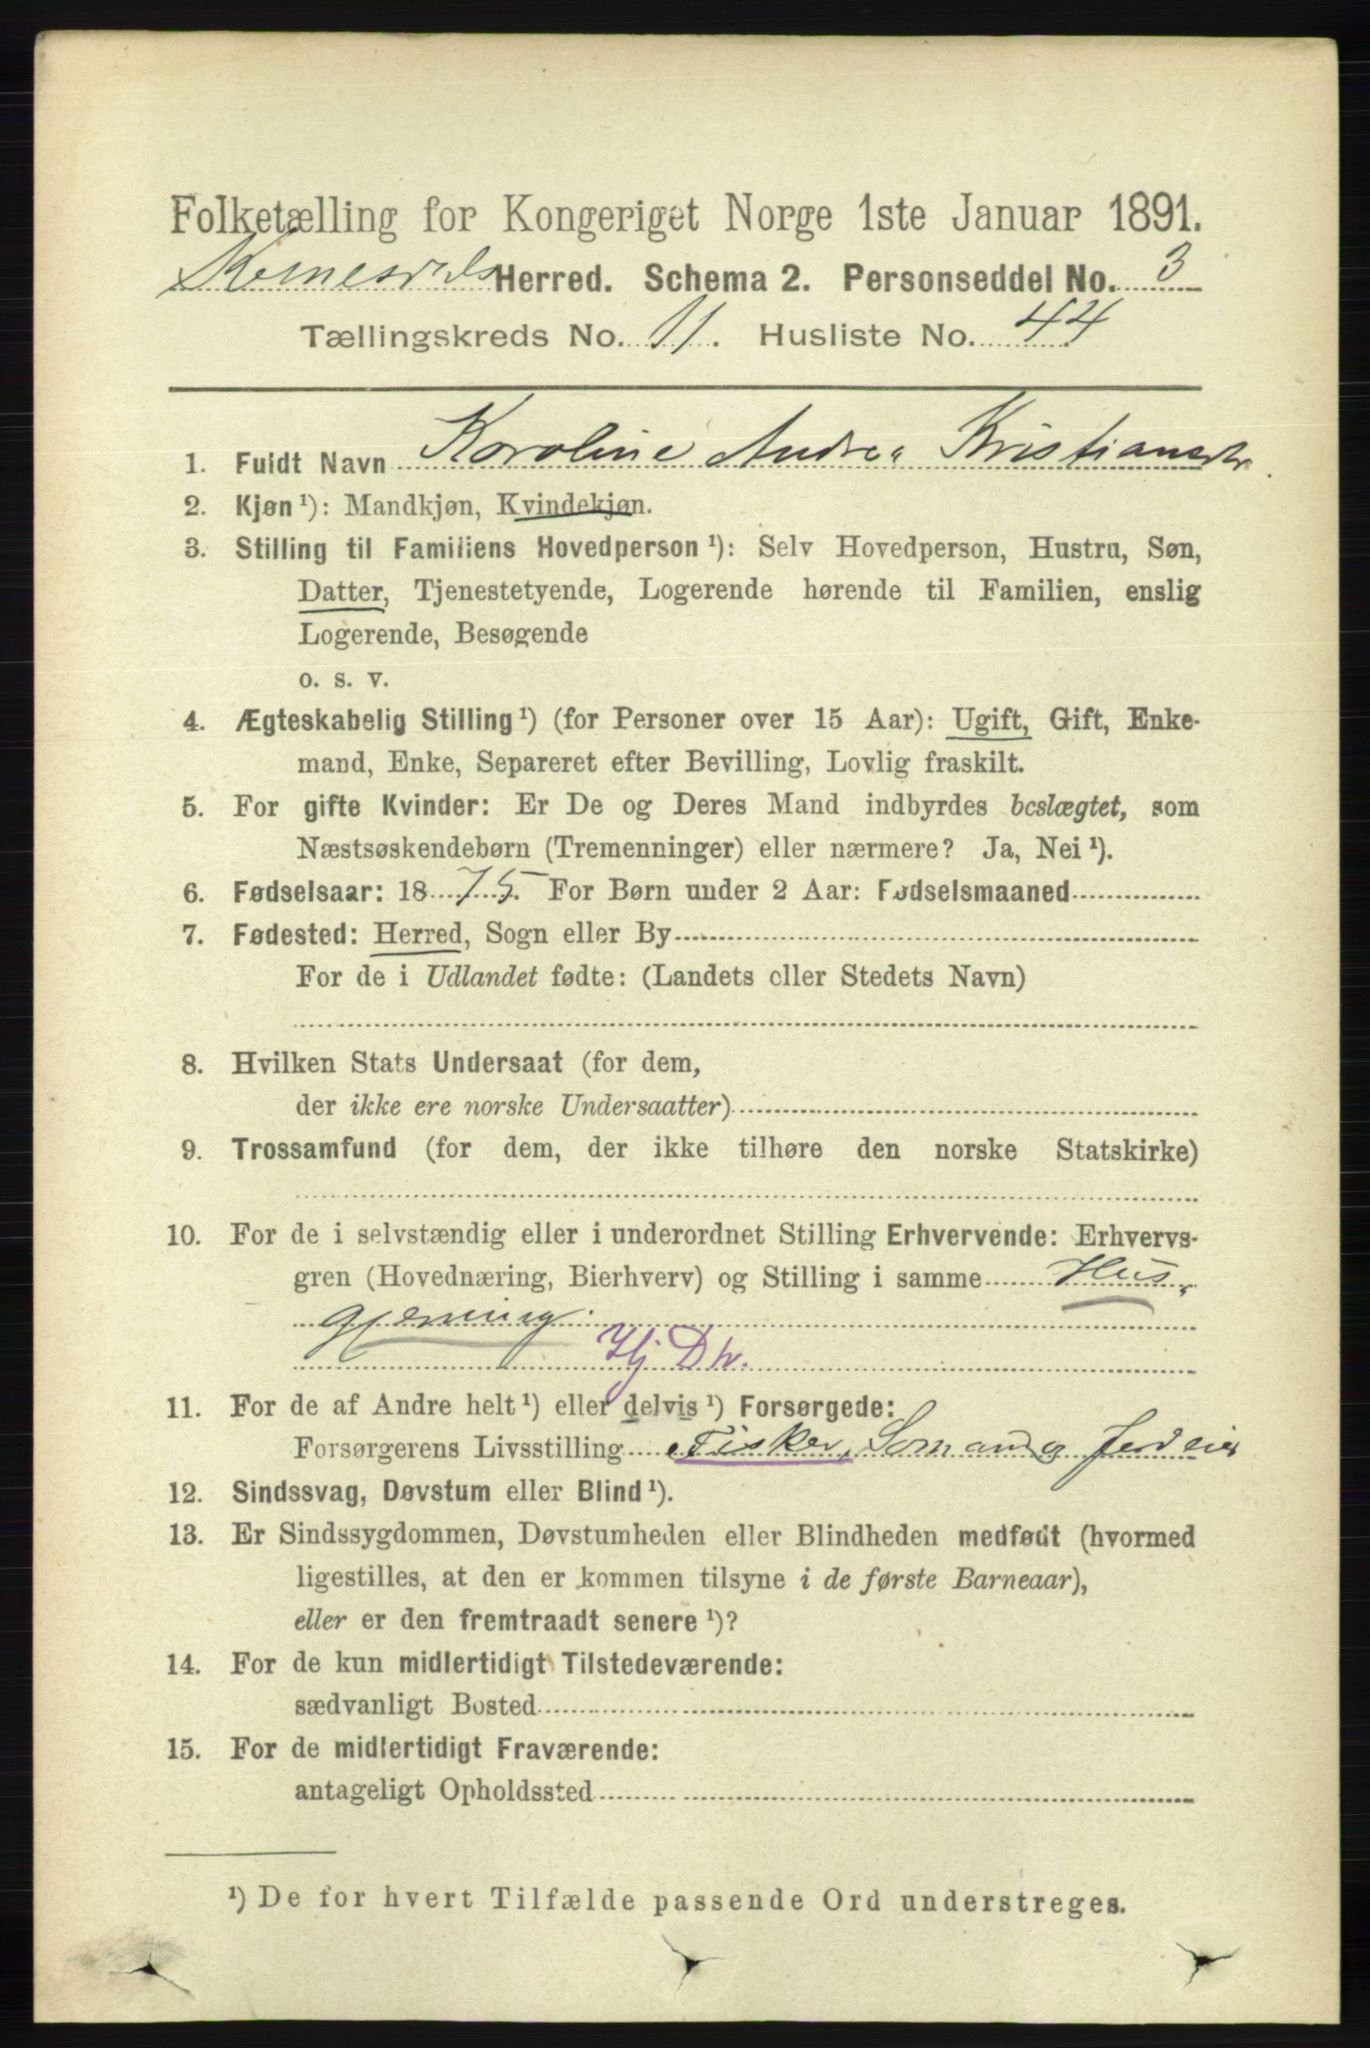 Folketælling for Kongeriget Norge 1ste Januar 1891.
Herred. Schema 2. Personseddel No. 3
Tællingskreds No. 11. Husliste No. 44
1. Fuldt Navn Karoline Andrea Kristiansdtr
2. Kjøn ¹): Mandkjøn, Kvindekjøn.
3. Stilling til Familiens Hovedperson ¹): Selv Hovedperson, Hustru, Søn,
Datter, Tjenestetyende, Logerende hørende til Familien, enslig
Logerende, Besøgende
o. s. v.
4. Ægteskabelig Stilling ¹) (for Personer over 15 Aar): Ugift, Gift, Enke-
mand, Enke, Separeret efter Bevilling, Lovlig fraskilt.
5. For gifte Kvinder: Er De og Deres Mand indbyrdes beslægtet, som
Næstsøskendebørn (Tremenninger) eller nærmere? Ja, Nei ¹).
6. Fødselsaar: 1875. For Børn under 2 Aar: Fødselsmaaned
7. Fødested: Herred, Sogn eller By
For de i Udlandet fødte: (Landets eller Stedets Navn)
8. Hvilken Stats Undersaat (for dem,
der ikke ere norske Undersaatter)
9. Trossamfund (for dem, der ikke tilhøre den norske Statskirke)
10. For de i selvstændig eller i underordnet Stilling Erhvervende: Erhvervs-
gren (Hovednæring, Bierhverv) og Stilling i samme Hus-
gjerning.
Hj Dtr.
11. For de af Andre helt ¹) eller delvis ¹) Forsørgede:
Forsørgerens Livsstilling Fisker, Somand og Jordeier
12. Sindssvag, Døvstum eller Blind ¹).
13. Er Sindssygdommen, Døvstumheden eller Blindheden medfødt (hvormed
ligestilles, at den er kommen tilsyne i de første Barneaar),
eller er den fremtraadt senere ¹)?
14. For de kun midlertidigt Tilstedeværende:
sædvanligt Bosted
15. For de midlertidigt Fraværende:
antageligt Opholdssted
¹) De for hvert Tilfælde passende Ord understreges.